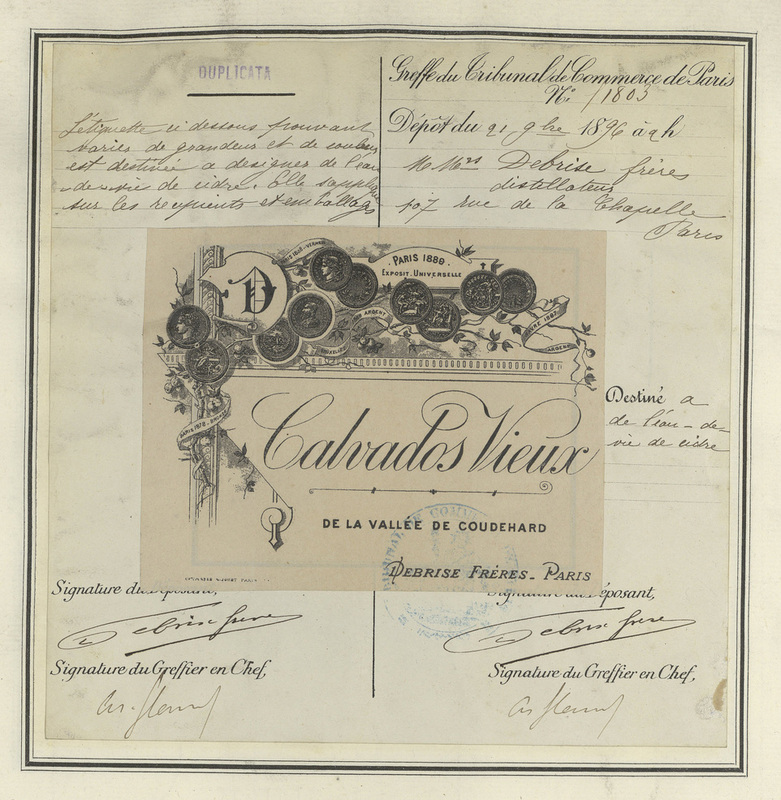 DUPLICATA
L'étiquette ci dessous pouvant
varier de grandeur et de couleur
est destinée a designer de l'eau
de vie de cidre. Elle s'applique
sur les recipients et emballages
Greffe du Tribunal de Commerce de Paris
No. 1803
Dépôt du 21 9bre 1896 à 2h
MMrs Debrise frères
distillateurs
107 rue de la Chapelle
Paris
PARIS 1889
EXPOSIT. UNIVERSELLE
D
ARGENT
ARGENT
Calvados Vieux
DE LA VALLÉE DE COUDEHARD
DEBRISE FRÈRES - PARIS
Destiné a
de l'eau-de-
vie de cidre
Signature du Déposant,
Signature du Déposant,
Debrise frères
Debrise frères
Signature du Greffier en Chef,
Signature du Greffier en Chef,